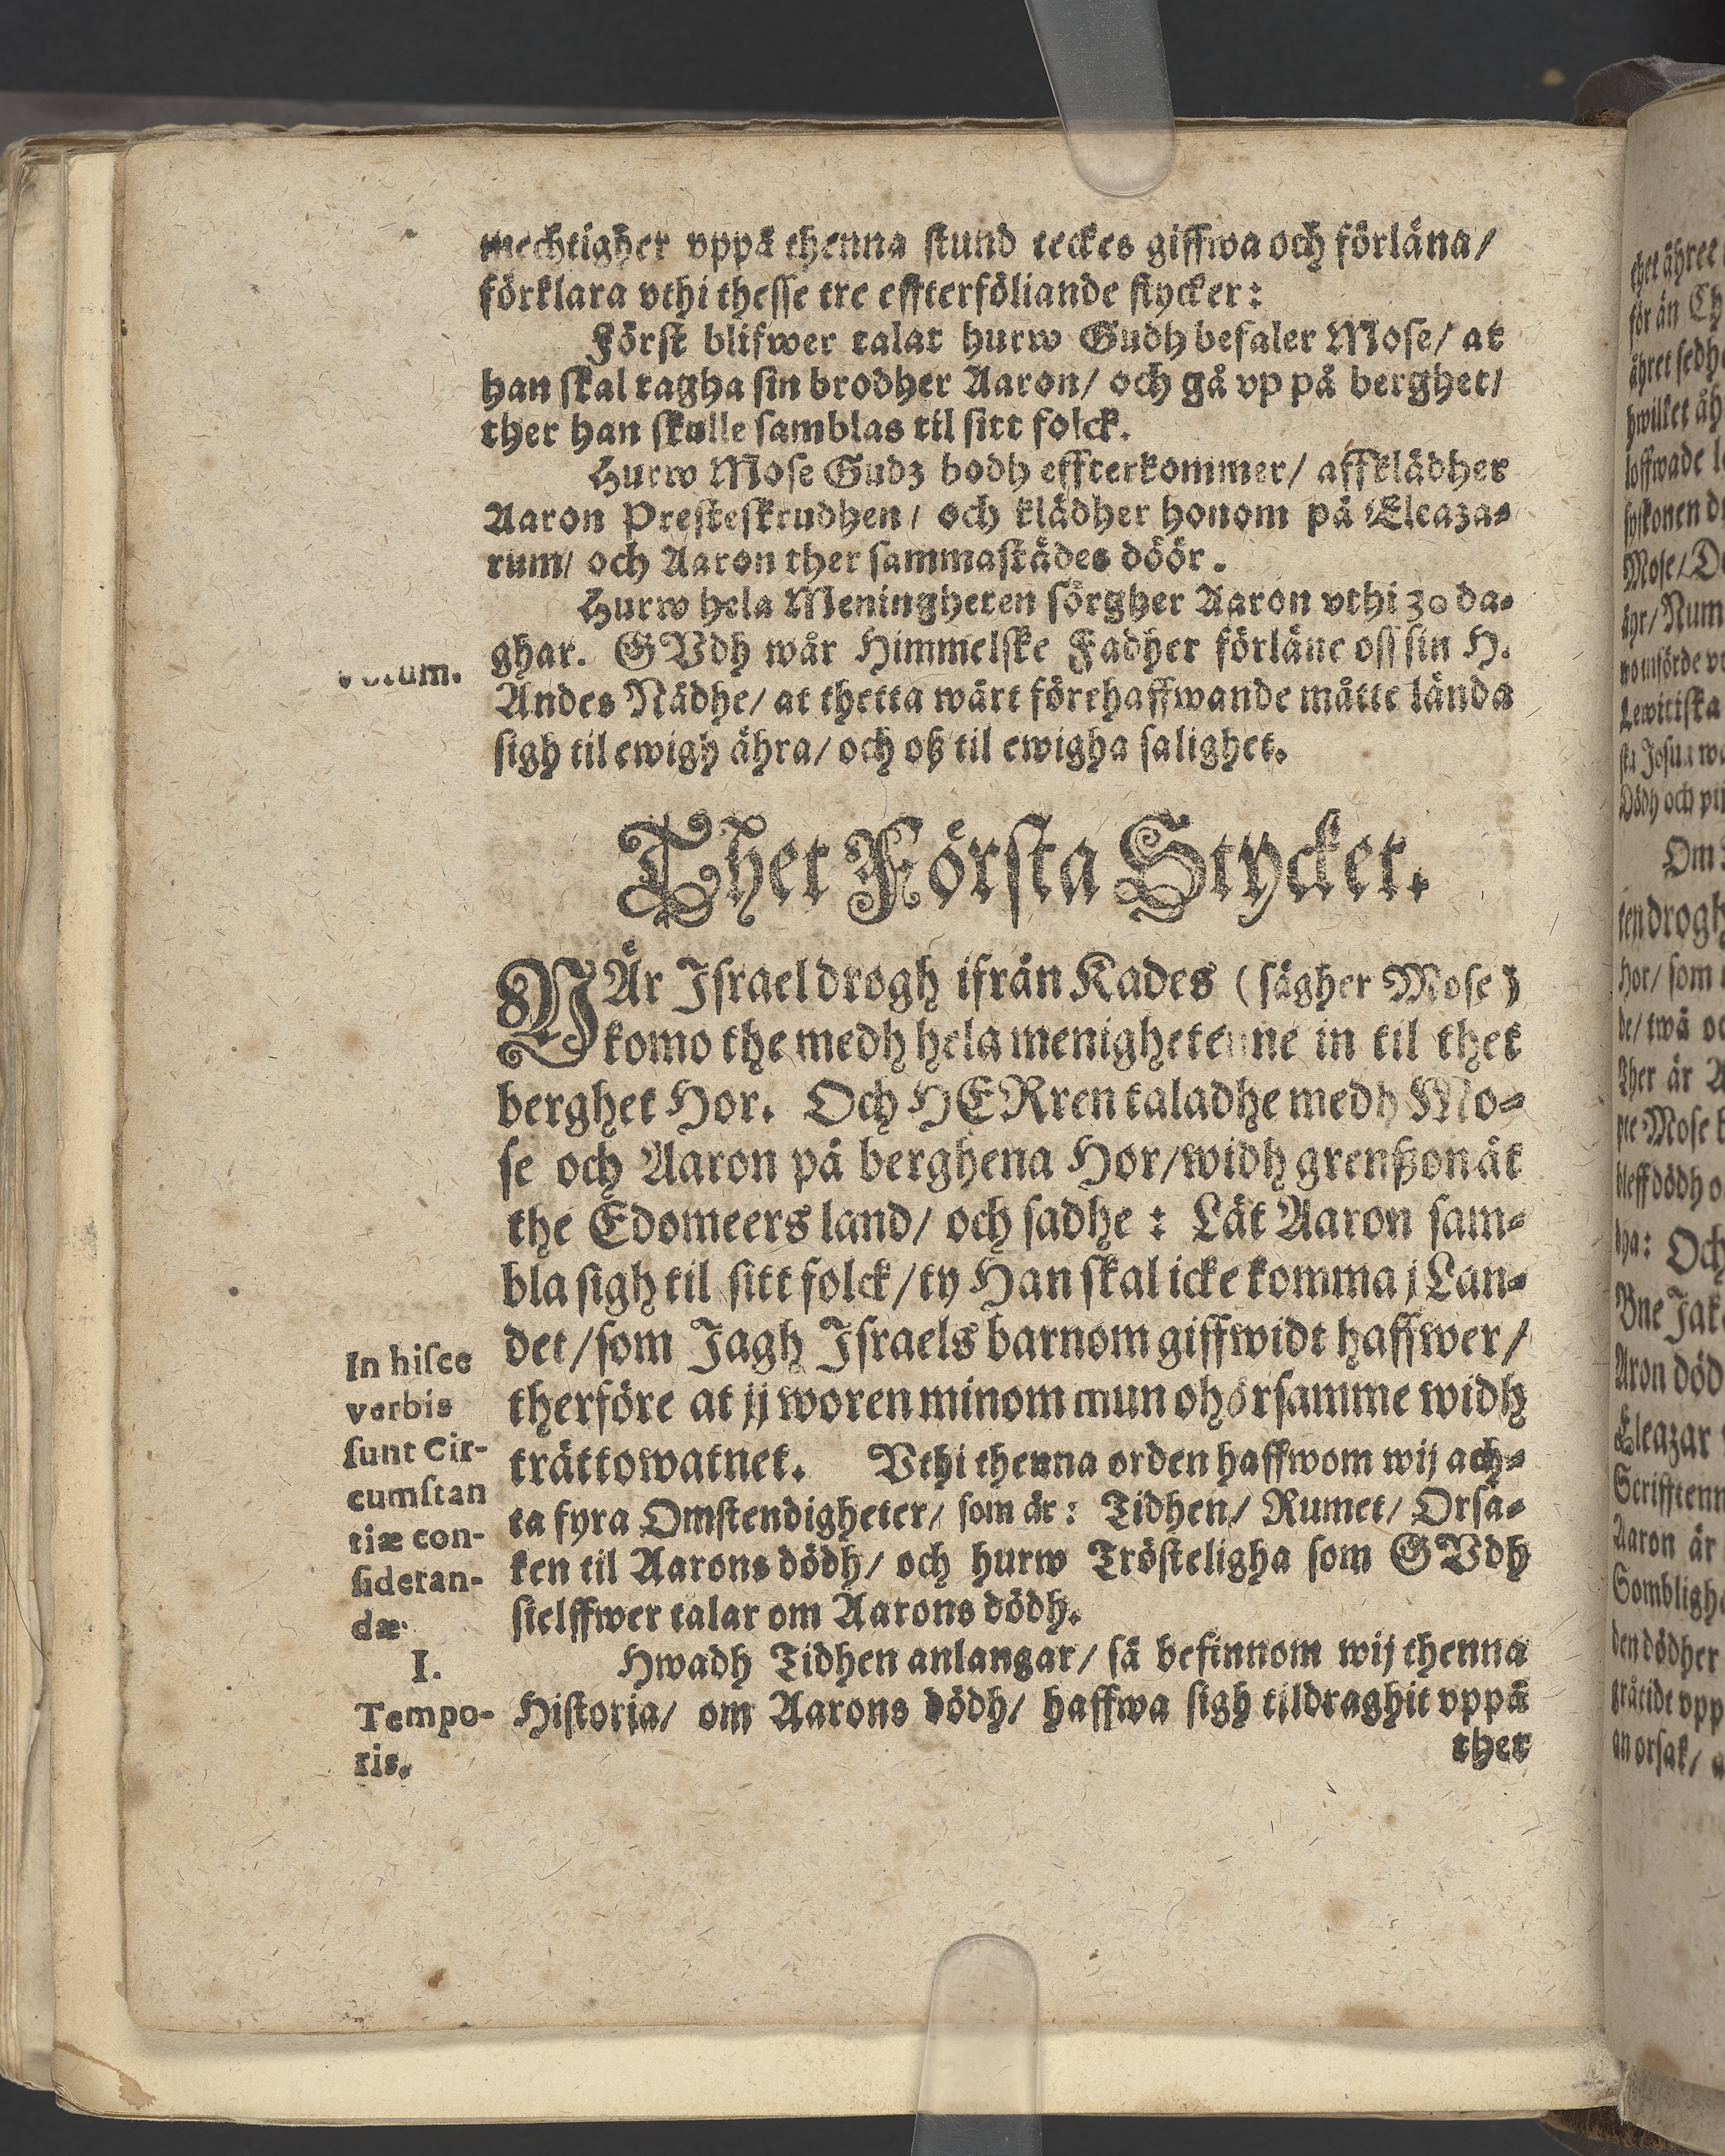 mechtigher vppå thenna stund teckes giffwa och förläna/
förklara vthi thesse tre effterföliande stycker:
Först blifwer talat hurw Gudh befaler Mose/ at
han skal tagha sin brodher Aaron/ och gå vp på berghet/
ther han skulle samblas til sitt folck.
Hurw Mose Gudz bodh effterkommer/ affklädher
Aaron Presteskrudhen/ och klädher honom på Eleaza-
rum/ och Aaron ther sammastädes döör.
Hurw hela Meningheten sörgher Aaron vthi 30 da-
ghar. GVdh wår Himmelske Fadher förläne oss sin H.
Votum.
Andes Nådhe/ at thetta wårt förehaffwande måtte lända
sigh til ewigh ähra/ och oß til ewigha salighet.
Thet Första Stycket.
NÄr Israel drogh ifrån Kades (sägher Mose)
komo the medh hela menighetenne in til thet
berghet Hor. Och HERren taladhe medh Mo-
se och Aaron på berghena Hor/ widh grenßon åt
the Edomeers land/ och sadhe: Låt Aaron sam-
bla sigh til sitt folck/ ty Han skal icke komma j Lan-
det/ som Jagh Israels barnom giffwidt haffwer/
therföre at jj woren minom mun ohörsamme widh
trättowatnet. Vthi thenna orden haffwom wij ach-
ta fyra Omstendigheter/ som är: Tidhen/ Rumet/ Orsa-
ken til Aarons dödh/ och hurw Trösteligha som GVdh
sielffwer talar om Aarons dödh.
In hisce
verbis
sunt Cir-
cumstan
tiæ con-
sideran-
dæ
I.
Tempo-
ris.
Hwadh Tidhen anlangar/ så befinnom wij thenna
Historia/ om Aarons dödh/ haffwa sigh tildraghit vppå
thet